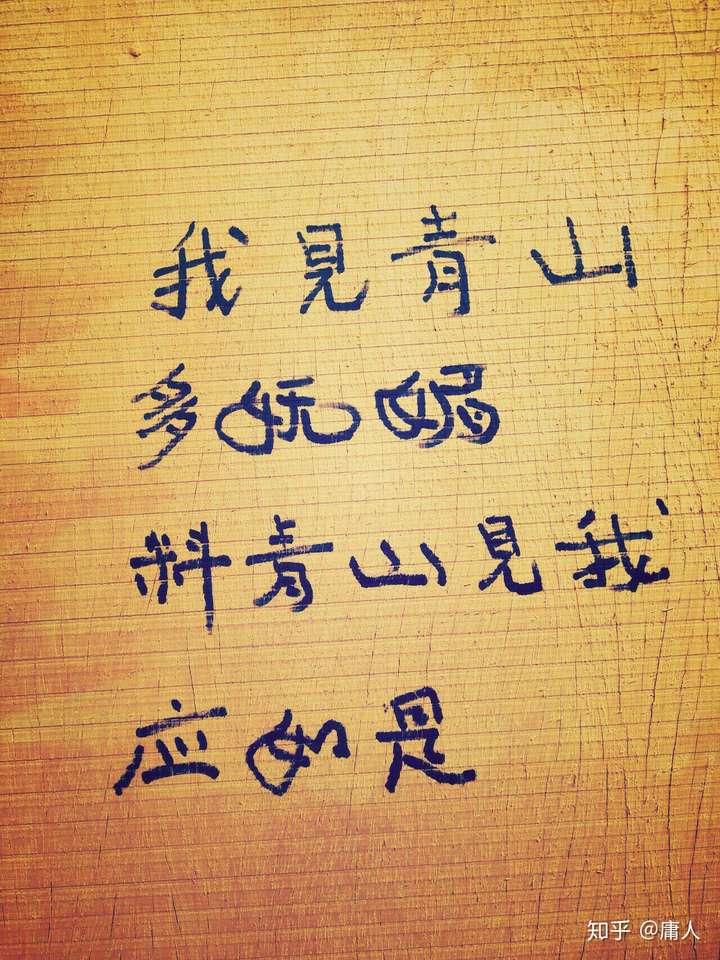 我見青山
多妩媚
料青山見我
应如是
知乎 @庸人